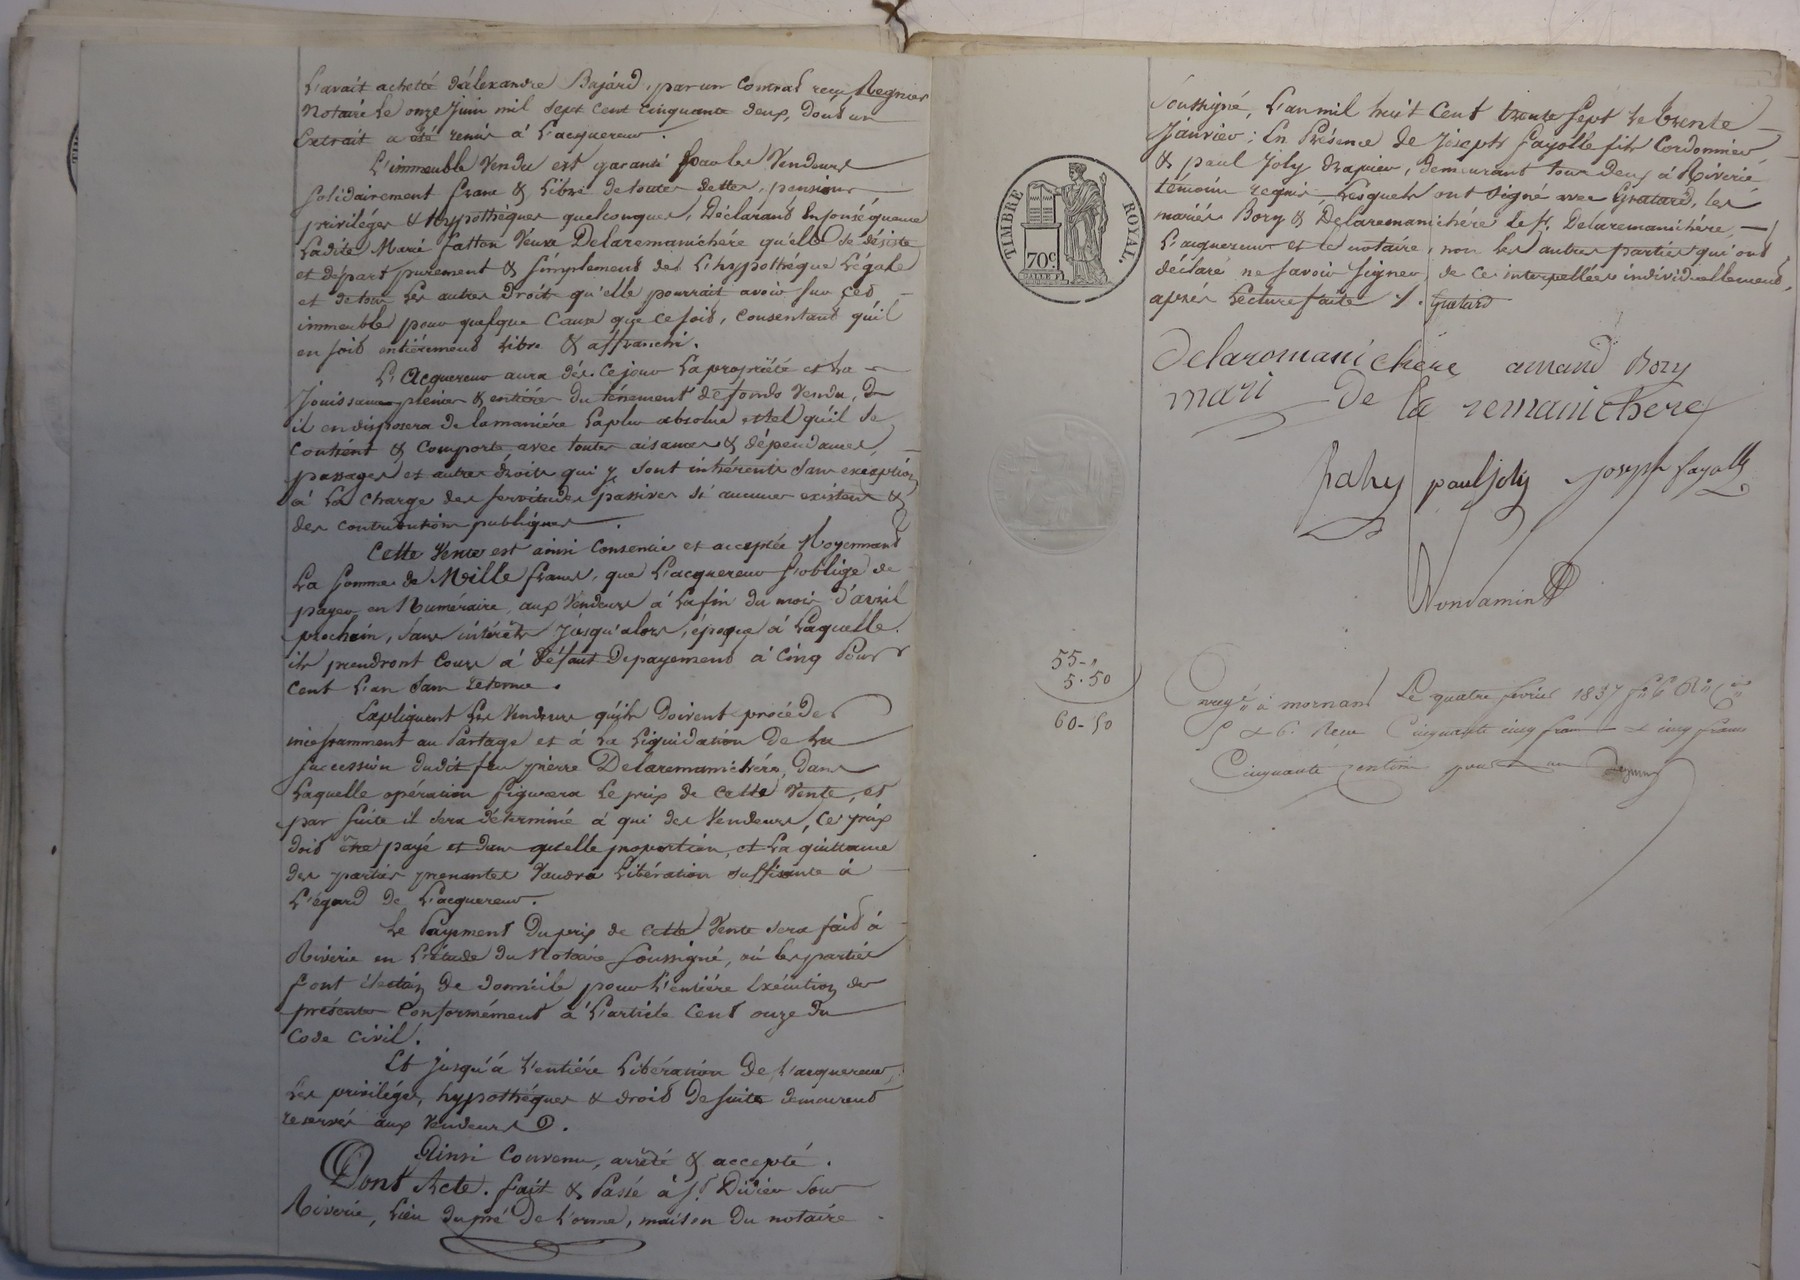 L'avait acheté d'alexandre Bajard, par un contrat reçu Regnier
Notaire le onze juin mil sept cent cinquante deux, dont un
Extrait a été remis à l'acquereur.
L'immeuble Vendu est garanti par les Vendeurs
solidairement franc & Libre de toutes dettes, pensions
priviléges & hypothèques quelconques, Déclarant En conséquence
Ladite Marie fatton Veuve Delaremanichére qu'elle se désiste
et départ purement & simplement de L'hypothéque Légale
et de tous Les autres Droits qu'elle pourrait avoir sur cet
immeuble pour quelque Cause que ce soit, consentant qu'il
en soit entiérement Libre & affranchi.
L'Acquereur aura dès ce jour La propriété et La
Jouissance pleine & entière du ténement de fonds Vendu, &
il en disposera de la maniére La plus absolue, et tel qu'il se
Contient & Comporte avec toutes aisances & dépendances,
passages et autres droits qui y sont inhérents sans exception
à La charge des servitudes passives si aucunes existent &
des contributions publiques.
Cette Vente est ainsi Consentie et acceptée Moyennant
La somme de Mille francs, que L'acquereur s'oblige de
payer en Numéraire, aux Vendeurs à La fin du mois d'avril
prochain, sans intérêts jusqu'alors, époque à Laquelle
ils prendront Cours à défaut De payement à Cinq Pour
Cent L'an sans retenue.
Expliquent Les Vendeurs qu'ils Doivent procéder
incessamment au Partage et à La Liquidation De La
succession dudit feu pierre Delaremanichére, dans
Laquelle opération figurera Le prix de cette Vente, et
par suite il sera déterminé à qui des Vendeurs, ce prix
doit être payé et dans qu'elle proportion, et La quittance
des parties prenantes Vaudra Libération suffisante à
L'égard de L'acquereur.
Le Payement Du prix de cette Vente sera fait à
Riverie en L'étude du Notaire soussigné, où les parties
font élection de domicile pour L'entiére Exécution des
présentes Conformément à L'article Cent onze du
Code Civil.
Et jusqu'à L'entiére Libération De L'acquereur,
Les priviléges, hypothéques & droit De suite demeurent
reservés aux Vendeurs.
Ainsi Convenu, arrêté & accepté.
Dont Acte. Fait & Passé à St. Didier sous
Riverie, Lieu du pré De L'orme, maison Du notaire
soussigné, L'an mil huit Cent trente sept Le trente
Janvier: En Présence de Joseph fayolle fils Cordonnier
& paul Joly drapier, demeurant tous deux à Riverie
témoins requis, Lesquels ont signé avec Gratard, les
mariés Bory & Delaremanichére, le Sr. Delaremanichére,
L'acquereur et le notaire, non les autres parties qui ont
déclaré ne savoir signer de ce interpellées individuellement,
après Lecture faite ./. Gratard
Delaromanichere armand Bory
mari De la remanichere
paul joly joseph fayolle
Rondamin
TIMBRE ROYAL.
70c.
55-"
5.50
60-50
Enregé. à mornant Le quatre fevrier 1837
5 & 6. Recu Cinquante cinq francs & cinq francs
Cinquante centimes pour